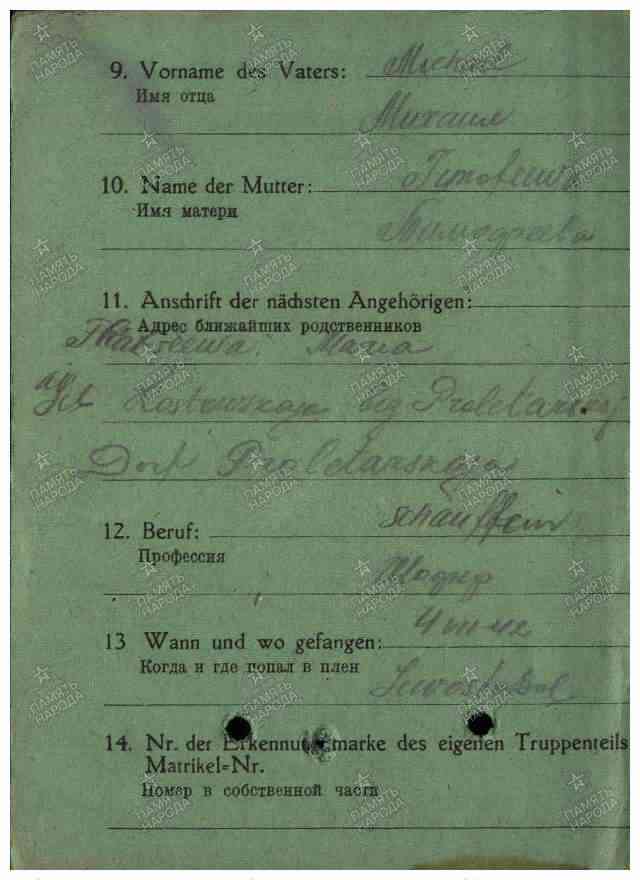 9. Vorname des Vaters: Michail
Имя отца
Михаил
10. Name der Mutter: Timofeewa
Имя матери
Тимофеева
11. Anschrift der nächsten Angehörigen:
Адрес ближайших родственников
Maria
Gebt Rostowskaja bez Proletarskij
Dorf Proletarskaja
12. Beruf: Schauffeur
Профессия
Шофер
13 Wann und wo gefangen: 4 VII 42
Когда и где попал в плен
Sewostopol
14. Nr. der Erkennungsmarke des eigenen Truppenteils
Matrikel=Nr.
Номер в собственной части
ПАМЯТЬ НАРОДА